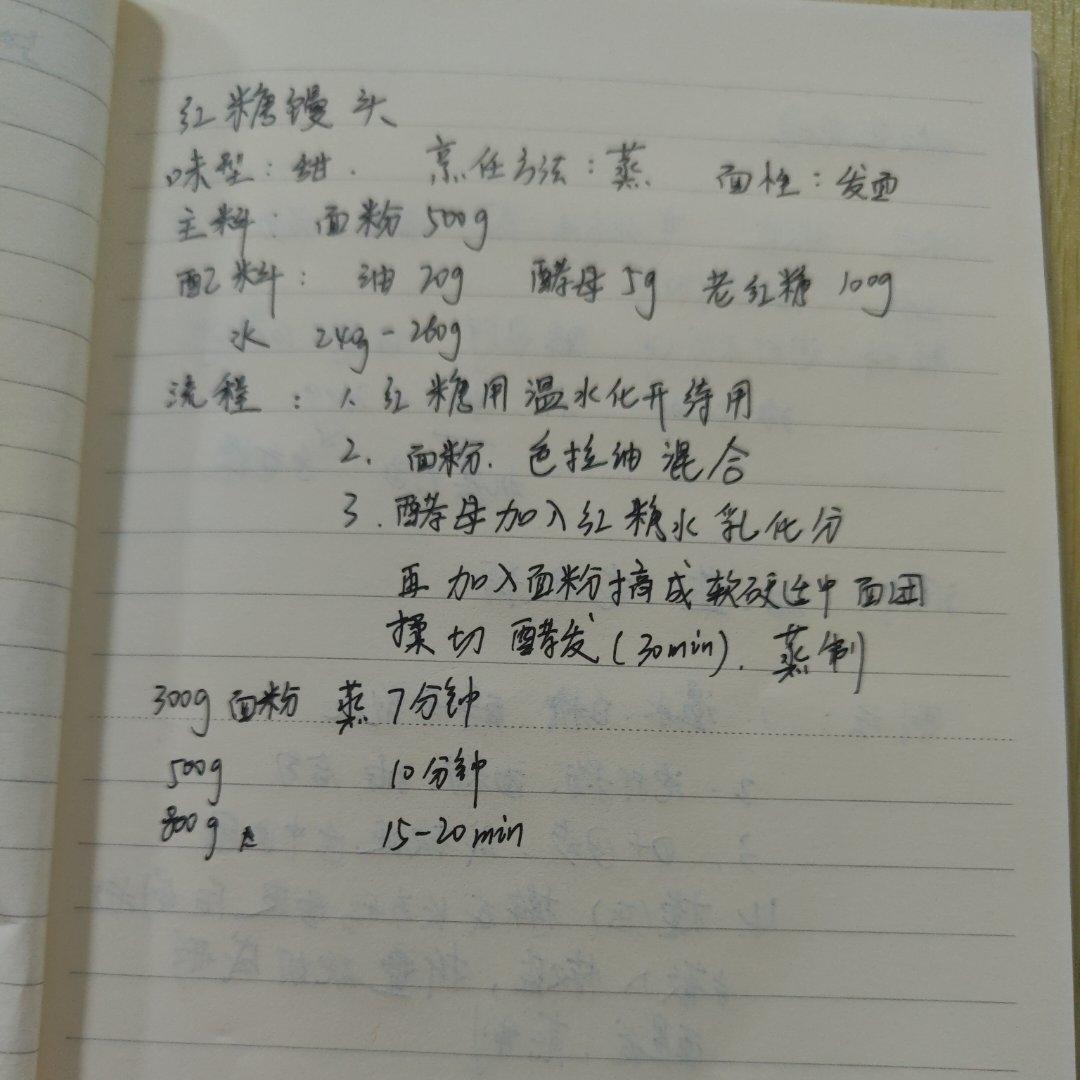 红糖馒头
味型：甜. 烹任方法：蒸 面性：发面
主料： 面粉 500g
配料： 油 20g 酵母 5g 老红糖 100g
水 240g-260g
流程：1. 红糖用温水化开待用
2. 面粉. 色拉油混合
3. 酵母加入红糖水乳化分
再加入面粉搞成软硬适中面团
揉切 酵发(30min). 蒸制
300g 面粉 蒸 7分钟
500g 10分钟
800g 15-20min